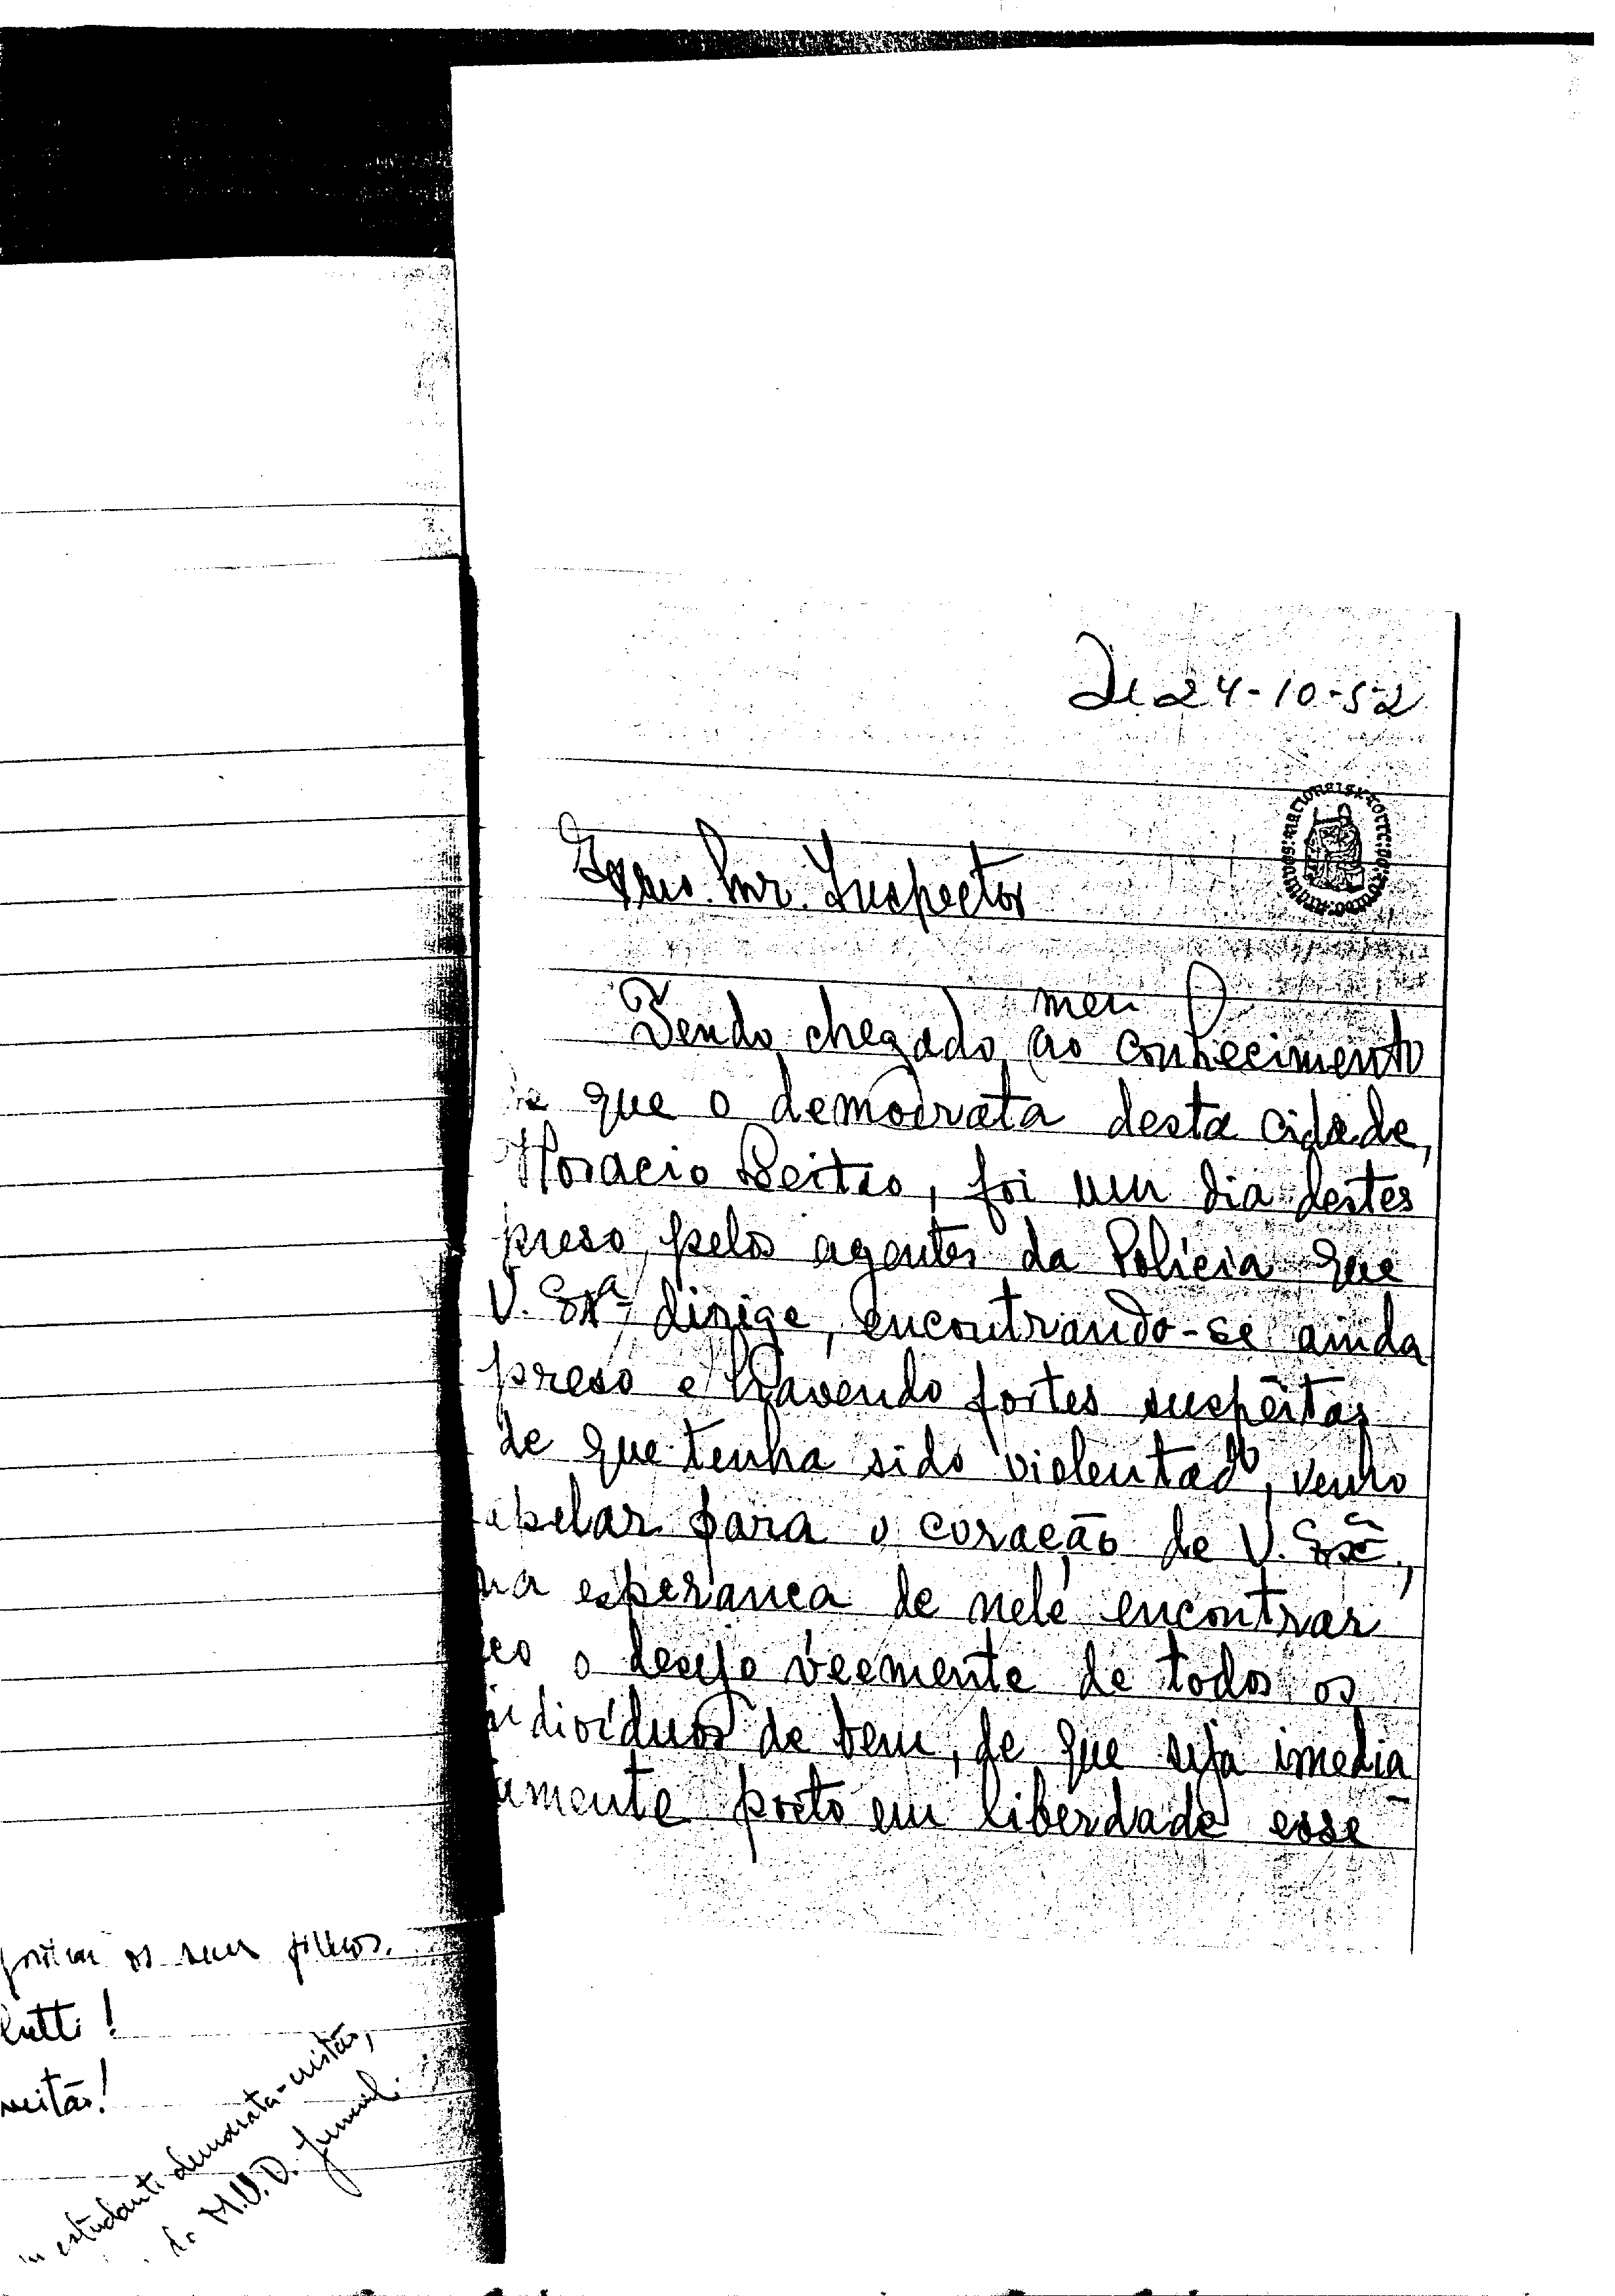 De 24-10-52
Exmo. Snr. Inspector
meu
Tendo chegado ao conhecimento
de que o democrata desta cidade,
Horacio Leitão, foi um dia destes
preso, pelos agentes da Policia que
V. Exª dirige, encontrando-se ainda
preso e havendo fortes suspeitas
de que tenha sido violentado, venho
apelar para o coração de V. Exª.,
na esperança de nele encontrar
eco o desejo veemente de todos os
indivíduos de bem, de que seja imedia
tamente posto em liberdade esse
os seus filhos.
lutti!
estudante democrata-cristão,
do M.U.D. Juvenil